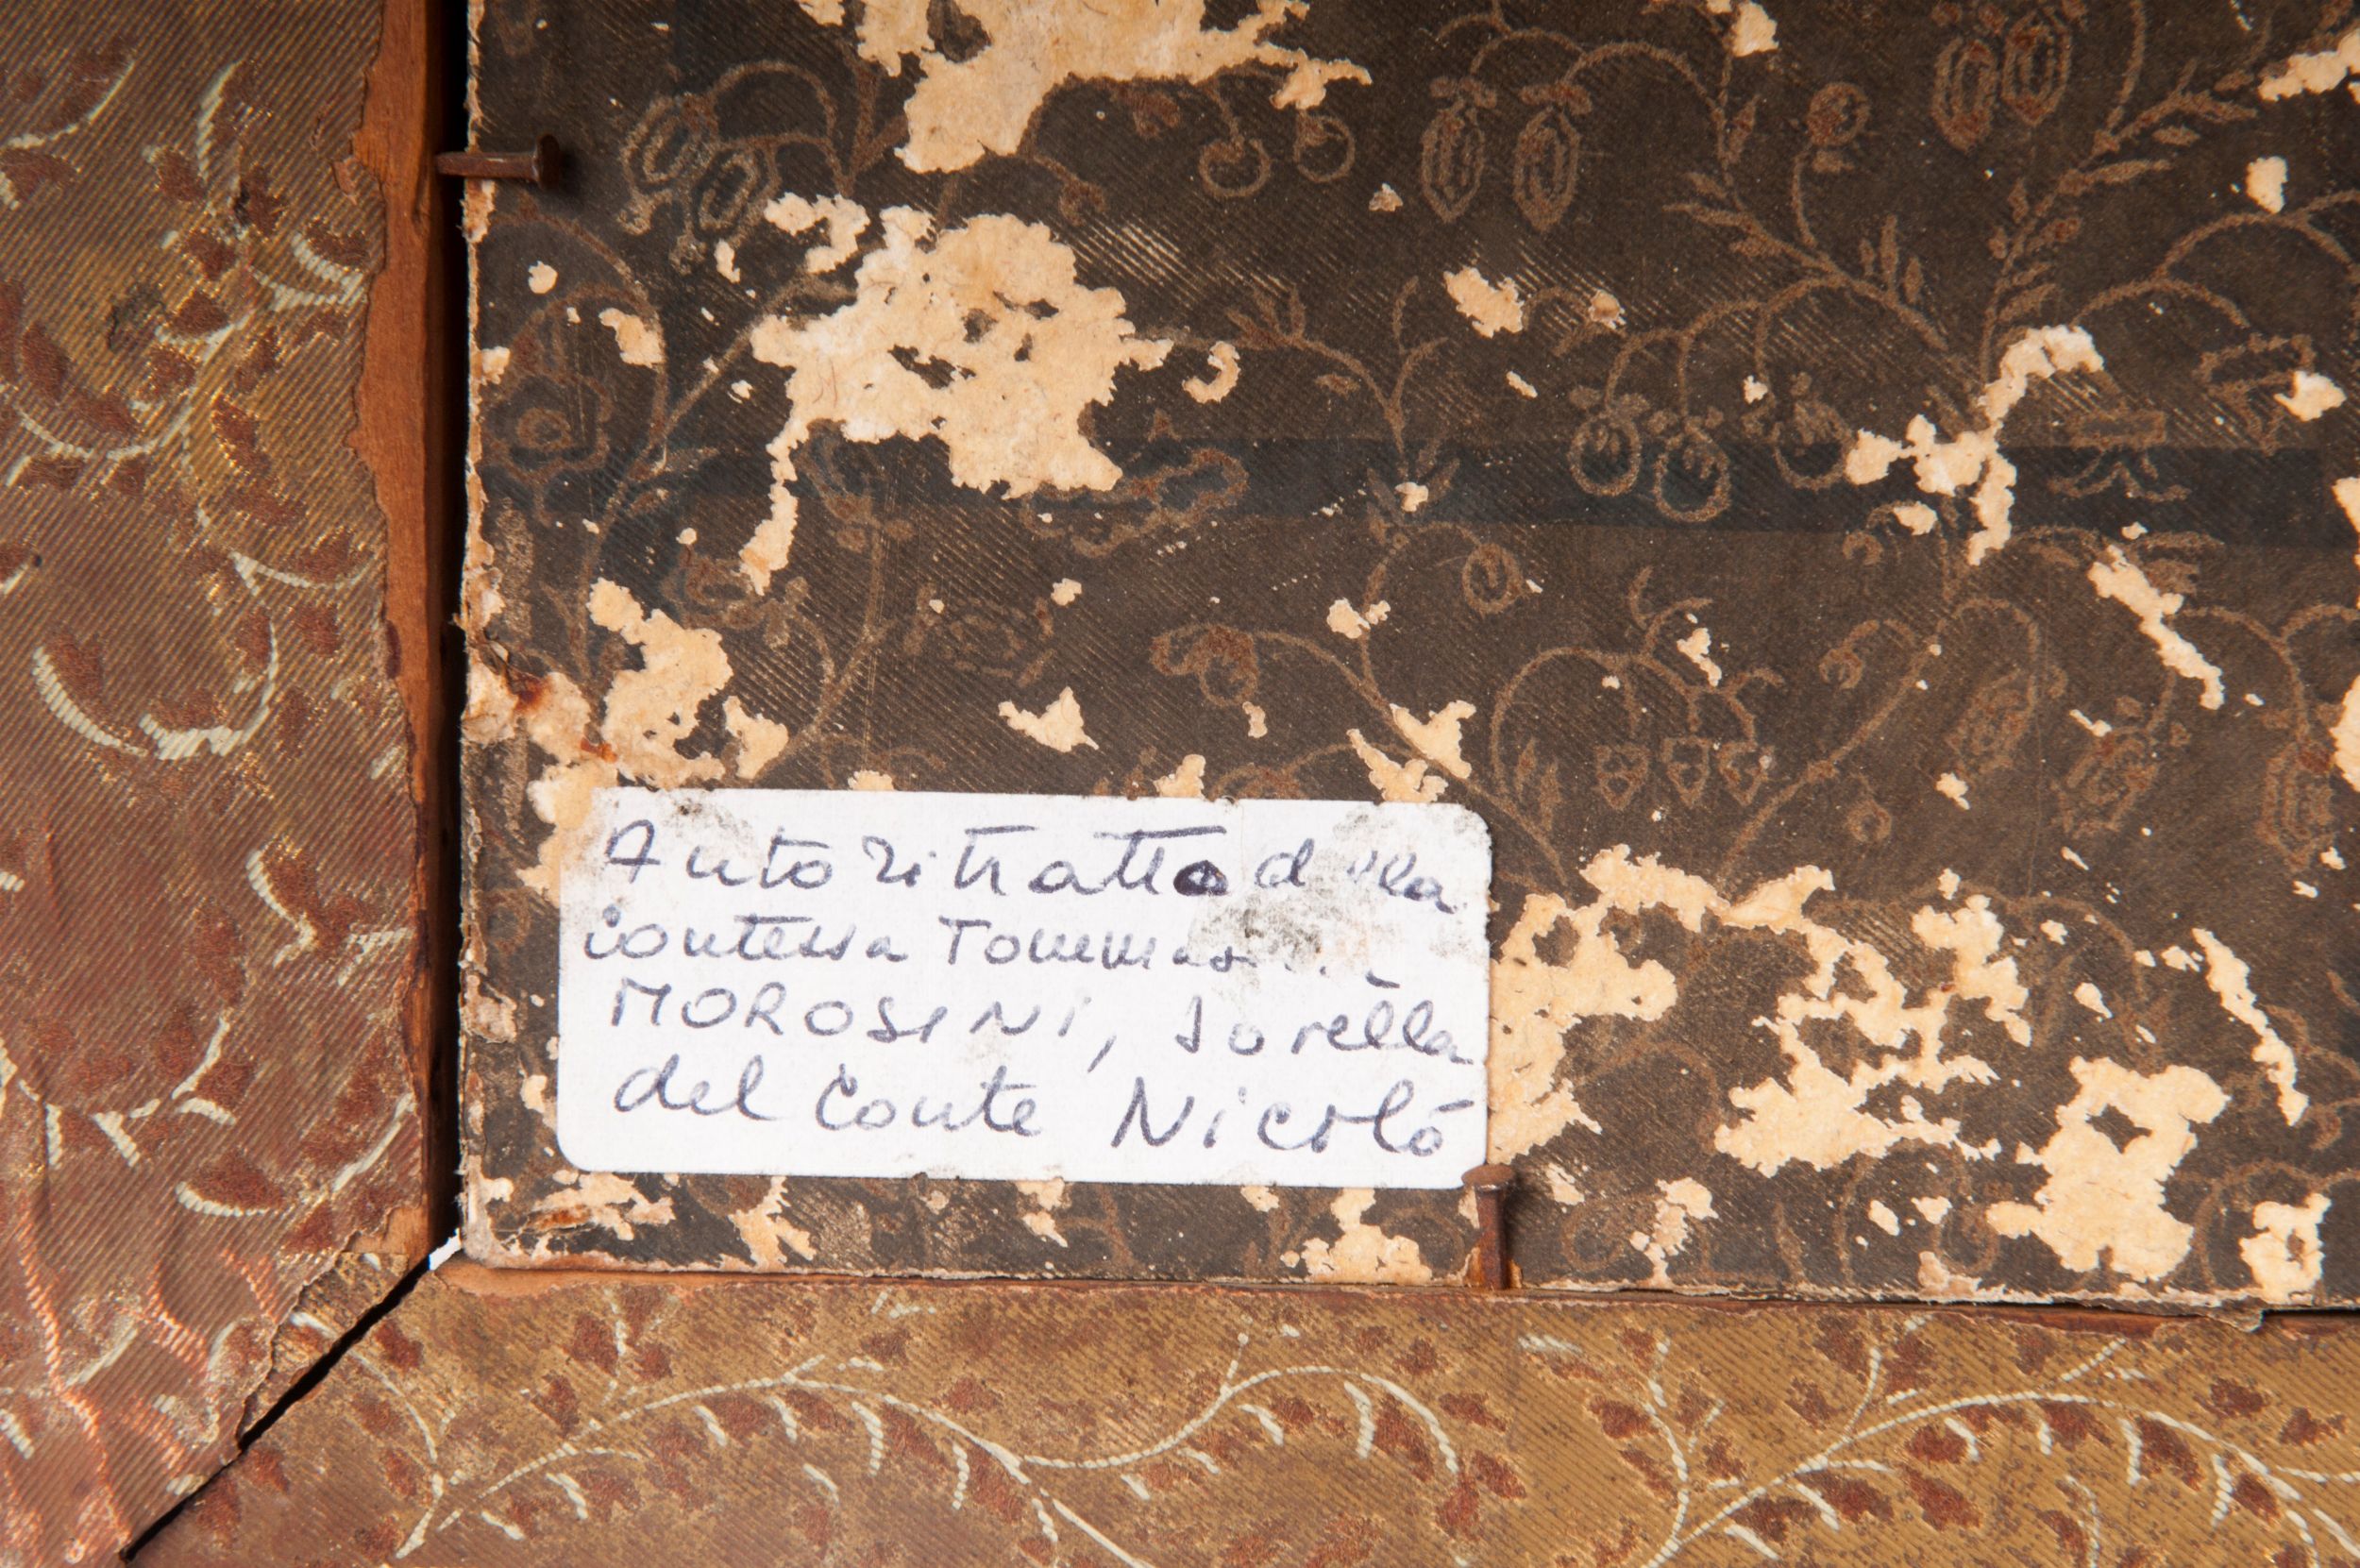 Autoritratto della
contessa
MOROSINI, sorella
del conte Nicolò